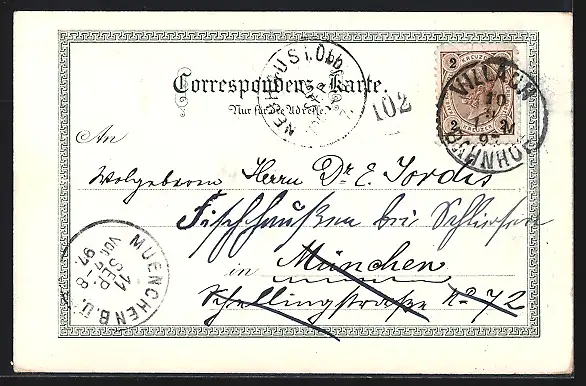 Correspondenz-Karte.
Nur für die Adresse.
102
2 KREUZER 2
VILLACH
BAHNHOF
10
An
Wolgeboren Herrn Dr. E. Jordis
Fischhaußen bei Schliersee
in München
Schellingstraße No 72
MUENCHEN B.Ü.
11
SEP.
VOR. 7-8
97.